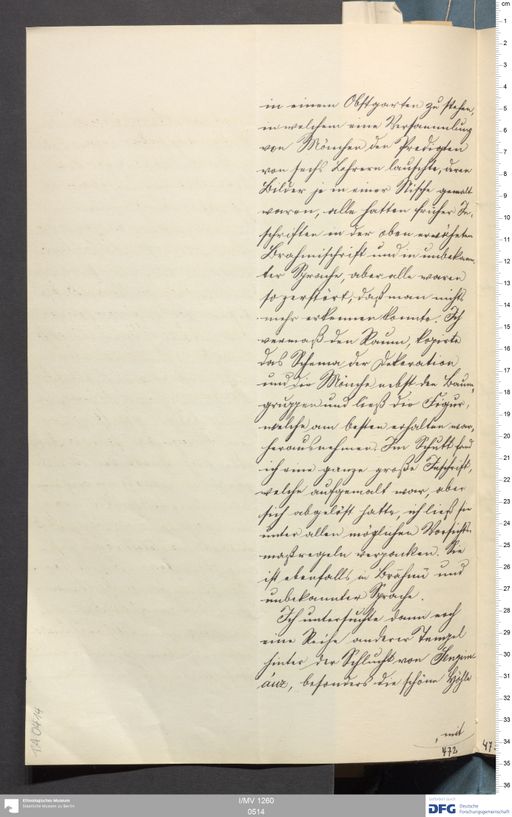 in einem Obstgarten zu stehen,
in welchem eine Versammlung
von Mönchen den Predigten
von sechs Lehrern lauschte, deren
Bilder je in einer Nische gemalt
waren, alle hatten früher In-
schriften in der oben erwähnten
Brahmischrift und in unbekann-
ter Sprache, aber alle waren
so zerstört, daß man nichts
mehr erkennen konnte. Ich
vermaß den Raum, kopirte
das Schema der Dekoration
und der Mönche nebst den Baum-
gruppen und ließ die Figur,
welche am besten erhalten war,
herausnehmen. Im Schutt fand
ich eine ganze große Inschrift,
welche aufgemalt war, aber
sich abgelöst hatte, ich ließ sie
unter allen möglichen Vorsichts-
maßregeln verpacken. Sie
ist ebenfalls in Brāhmī und
unbekannter Sprache.
Ich untersuchte dann noch
eine Reihe anderer Tempel
hinter der Schlucht von
besonders die schöne Höhle
, mit
472
47.
TA 0414
Ethnologisches Museum
Staatliche Museen zu Berlin
I/MV 1260
0514
DFG Deutsche
Forschungsgemeinschaft